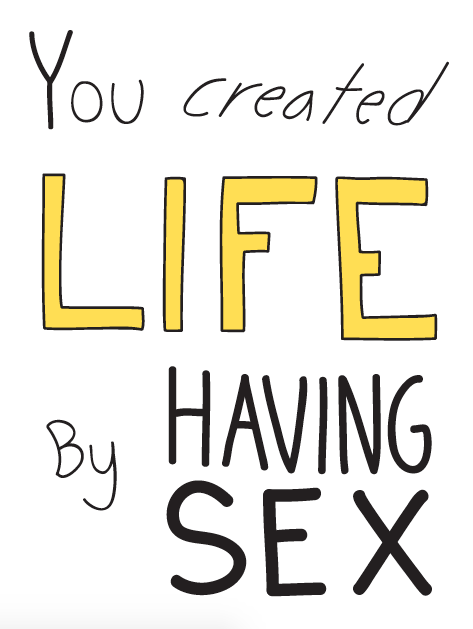 You created
LIFE
By HAVING
SEX